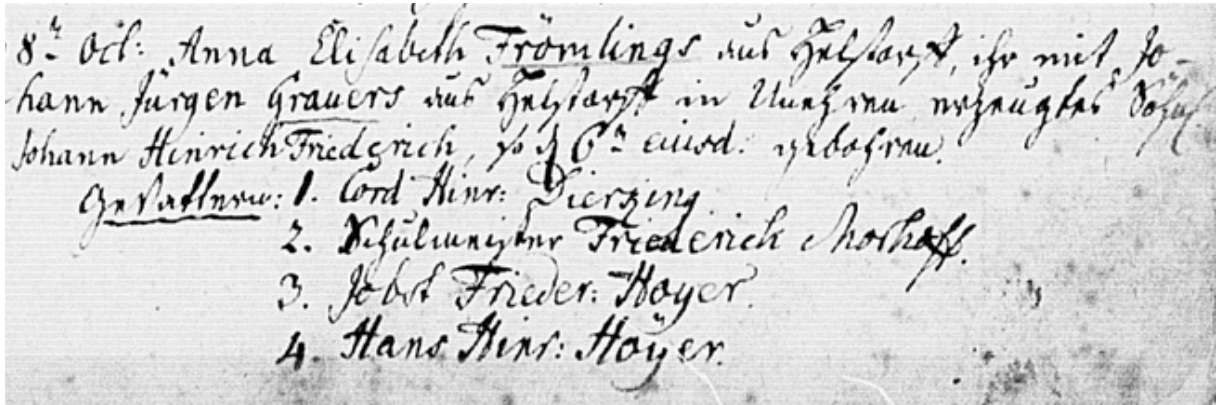 8ᵗ Oct: Anna Elisabeth Frömlings aus Helstorff, ihr mit Jo-
hann Jürgen Grauers aus Helstorff in Unehren erzeugtes Söhnl
Johann Hinrich Friederich, so d 6ᵗ eiusd: gebohren.
Gevattern: 1. Cord Hinr: Dierking
2. Schulmeister Friederich Morhoff.
3. Jobst Frieder: Hoyer.
4. Hans Hinr: Hoÿer.